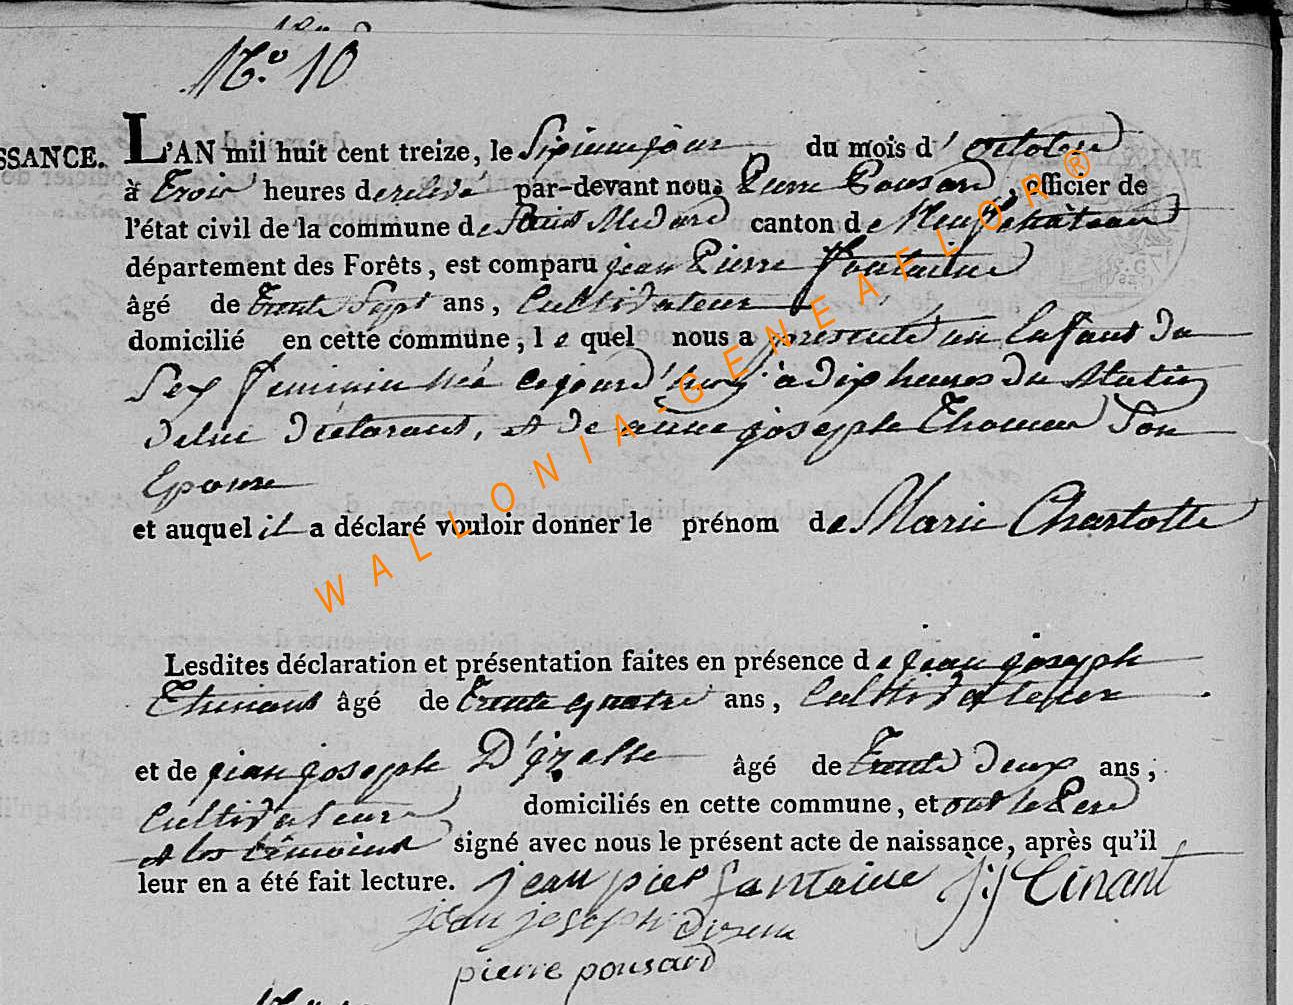 N.° 10
SSANCE.
L'AN mil huit cent treize, le Sixieme jour du mois d' octobre
à Trois heures de relevé par-devant nous Pierre Pousard, officier de
l'état civil de la commune de Saint Medard canton de Neufchâteau
département des Forêts, est comparu jean Pierre fontaine
âgé de Trente Sept ans, Cultivateur
domicilié en cette commune, le quel nous a présenté un Enfant du
Sex feminin née cejourd'huy à dix heures du Matin
delui déclarant, et de anne joseph Thomas Son
Epouse
et auquel il a déclaré vouloir donner le prénom de Marie Charlotte
Lesdites déclaration et présentation faites en présence de jean joseph
âgé de Trente quatre ans, Cultivateur
et de jean joseph D'izelle âgé de Trente deux ans,
Cultivateur domiciliés en cette commune, et ont le Pere
et les témoins signé avec nous le présent acte de naissance, après qu'il
leur en a été fait lecture. jean pier fontaine J:J Tinant
jean joseph
pierre pousard
WALLONIA-GENEAFLOR®